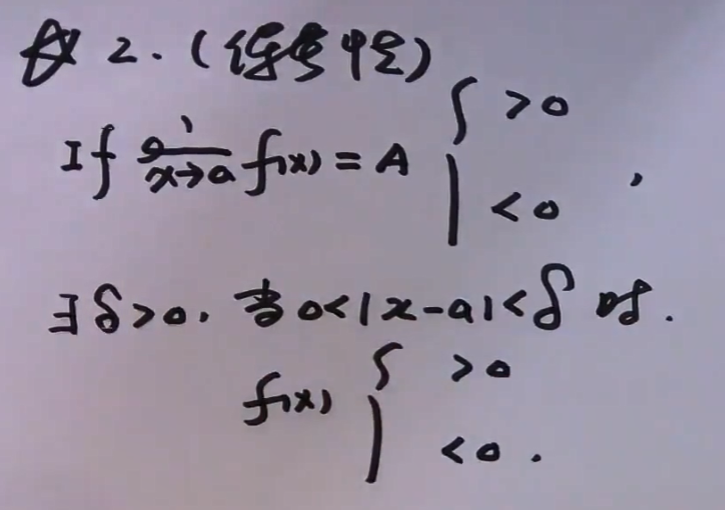 2.(保号性)
If lim x→a f(x) = A { >0
<0 ,
∃δ>0, 当0<|x-a|<δ时.
f(x) { >0
<0 .